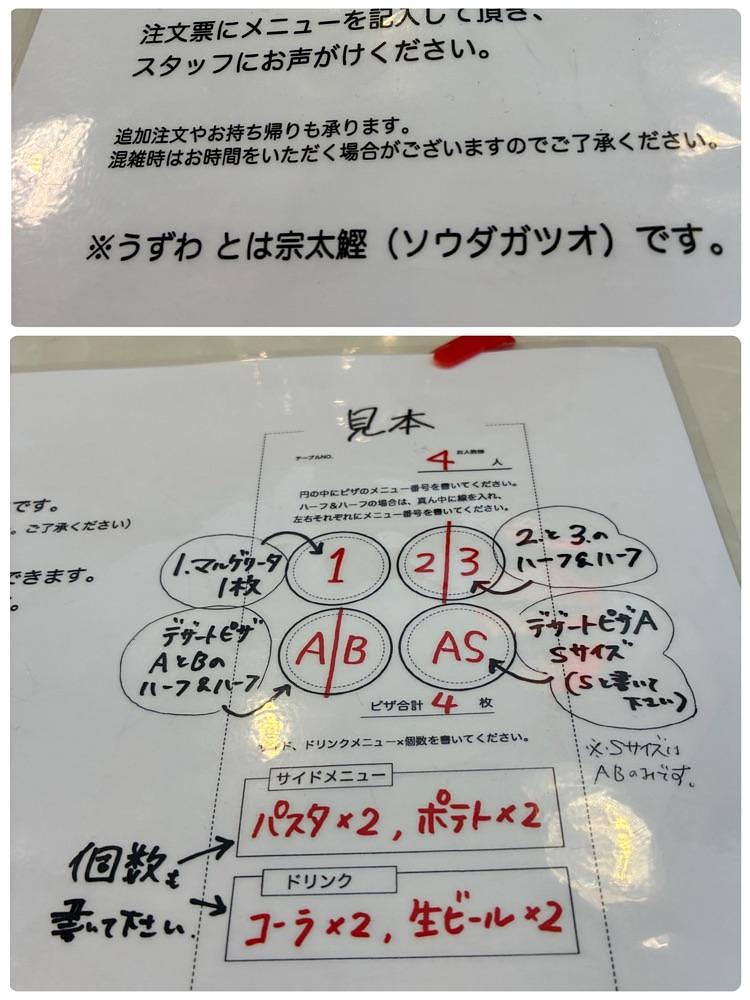 注文票にメニューを記入して頂き、
スタッフにお声がけください。
追加注文やお持ち帰りも承ります。
混雑時はお時間をいただく場合がございますのでご了承ください。
※うずわ とは宗太鰹（ソウダガツオ）です。
見本
テーブルNO.
4 人
円の中にピザのメニュー番号を書いてください。
ハーフ&ハーフの場合は、真ん中に線を入れ、
左右それぞれにメニュー番号を書いてください。
です。
。ご了承ください)
できます。
1.マルゲリータ
1枚
1
2|3
2.と3.の
ハーフ&ハーフ
デザートピザ
AとBの
ハーフ&ハーフ
A|B
AS
デザートピザA
Sサイズ
(Sと書いて
下さい)
ピザ合計 4 枚
ド、ドリンクメニュー×個数を書いてください。
※Sサイズは
ABのみです。
サイドメニュー
パスタ×2, ポテト×2
個数も
書いて下さい.
ドリンク
コーラ×2, 生ビール×2